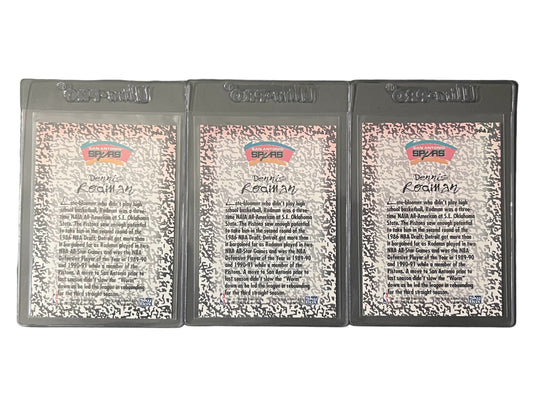 Ultra-PRO
Ultra-PRO
Ultra-PRO
SAN ANTONIO
SPURS
Dennis
Rodman
late-bloomer who didn't play high
school basketball, Rodman was a three-
time NAIA All-American at S.E. Oklahoma
State. The Pistons saw enough potential
to take him in the second round of the
1986 NBA Draft. Detroit got more than
it bargained for as Rodman played in two
NBA All-Star Games and was the NBA
Defensive Player of the Year in 1989-90
and 1990-91 while a member of the
Pistons. A move to San Antonio prior to
last season didn't slow the "Worm"
down as he led the league in rebounding
for the third straight season.
SAN ANTONIO
SPURS
Dennis
Rodman
late-bloomer who didn't play high
school basketball, Rodman was a three-
time NAIA All-American at S.E. Oklahoma
State. The Pistons saw enough potential
to take him in the second round of the
1986 NBA Draft. Detroit got more than
it bargained for as Rodman played in two
NBA All-Star Games and was the NBA
Defensive Player of the Year in 1989-90
and 1990-91 while a member of the
Pistons. A move to San Antonio prior to
last season didn't slow the "Worm"
down as he led the league in rebounding
for the third straight season.
SAN ANTONIO
SPURS
Dennis
Rodman
late-bloomer who didn't play high
school basketball, Rodman was a three-
time NAIA All-American at S.E. Oklahoma
State. The Pistons saw enough potential
to take him in the second round of the
1986 NBA Draft. Detroit got more than
it bargained for as Rodman played in two
NBA All-Star Games and was the NBA
Defensive Player of the Year in 1989-90
and 1990-91 while a member of the
Pistons. A move to San Antonio prior to
last season didn't slow the "Worm"
down as he led the league in rebounding
for the third straight season.